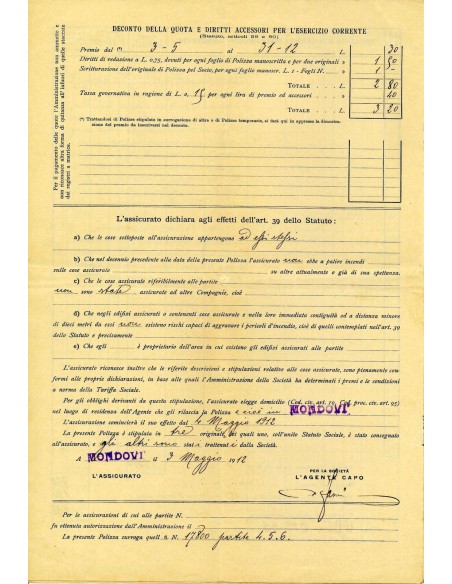 DECONTO DELLA QUOTA E DIRITTI ACCESSORI PER L'ESERCIZIO CORRENTE
(Statuto, articoli 28 e 80)
Premio dal (*) 3-5 al 31-12 L. 30
Diritti di redazione a L. 0.75, dovuti per ogni foglio di Polizza manoscritta e per due originali » 1 50
Scritturazione dell'originale di Polizza pel Socio, per ogni foglio manoscr. L. 1 - Fogli N. » 1 -
TOTALE L. 2 80
Tassa governativa in ragione di L. 0, 15 per ogni lira di premio ed accessori » 40
TOTALE L. 3 20
(*) Trattandosi di Polizze stipulate in surrogazione di altre o di Polizze temporanee, si farà qui in appresso la dimostrazione del premio da inscriversi nel deconto.
Per il pagamento delle quote l'Amministrazione non ammette e
non riconosce altra forma di quitanza all'infuori di quelle staccate
dai registri a matrice.
L'assicurato dichiara agli effetti dell'art. 39 dello Statuto:
a) Che le cose sottoposte all'assicurazione appartengono ad essi stessi
b) Che nel decennio precedente alla data della presente Polizza l'assicurato non ebbe a patire incendi
sulle cose assicurate su altre attualmente e già di sua spettanza.
c) Che le cose assicurate riferibilmente alle partite
non sono state assicurate ad altre Compagnie, cioè
d) Che negli edifizi assicurati o contenenti cose assicurate e nella loro immediata contiguità ed a distanza minore
di dieci metri da essi non esistono rischi capaci di aggravare i pericoli d'incendio, cioè di quelli contemplati nell'art. 39
dello Statuto e precisamente
e) Che egli è proprietario dell'area in cui esistono gli edifizi assicurati alle partite
L'assicurato riconosce inoltre che le riferite descrizioni e stipulazioni relative alle cose assicurate, sono pienamente con-
formi alle proprie dichiarazioni, in base alle quali l'Amministrazione della Società ha determinati i premi e le condizioni
a norma della Tariffa Sociale.
Per gli obblighi derivanti da questa stipulazione, l'assicurato elegge domicilio (Cod. civ. art. 19, Cod. proc. civ. art. 95)
nel luogo di residenza dell'Agente che gli rilascia la Polizza e cioè in MONDOVI'
L'assicurazione comincierà il suo effetto dal 4 Maggio 1912
La presente Polizza è stipulata in tre originali, dei quali uno, coll'unito Statuto Sociale, è stato consegnato
all'assicurato, e gli altri sono stati trattenuti dalla Società.
A MONDOVI' il 3 Maggio 1912
L'ASSICURATO
PER LA SOCIETÀ
L'AGENTE CAPO
Per le assicurazioni di cui alle partite N.
fu ottenuta autorizzazione dall'Amministrazione il
La presente Polizza surroga quell a N. 17800 partite 4.5.6.